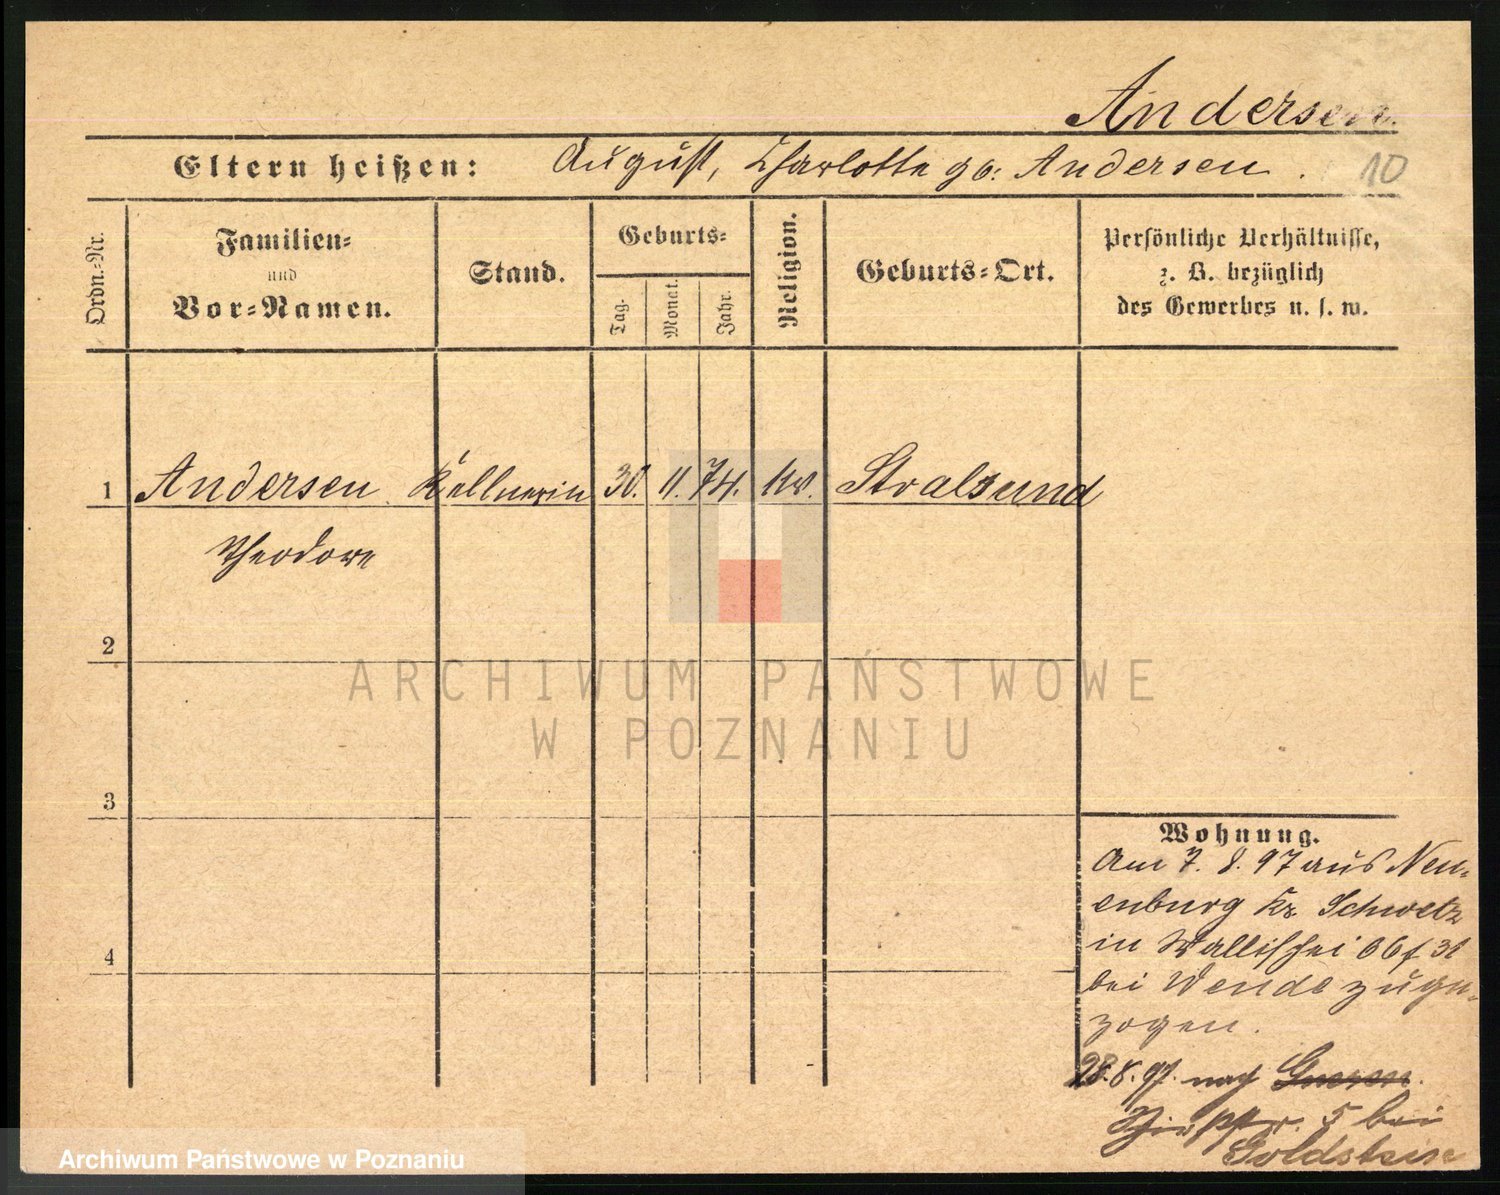 Andersen.
Eltern heißen: August, Charlotte gb: Andersen.
10
Ordn.-Nr.
Familien-
und
Vor-Namen.
Stand.
Geburts-
Tag.
Monat.
Jahr.
Religion.
Geburts-Ort.
Persönliche Verhältnisse,
z. B. bezüglich
des Gewerbes u. s. w.
1 Andersen Kellnerin 30. 11. 74. Stralsund
Theodore
2
3
4
ARCHIWUM PAŃSTWOWE
W POZNANIU
Wohnung.
Am 7. 8. 97 aus Neu-
enburg Kr. Schwetz
in Wallischei
bei Wende zuge-
zogen.
28.8.97. nach Gnesen.
5 bei
Goldstein
Archiwum Państwowe w Poznaniu